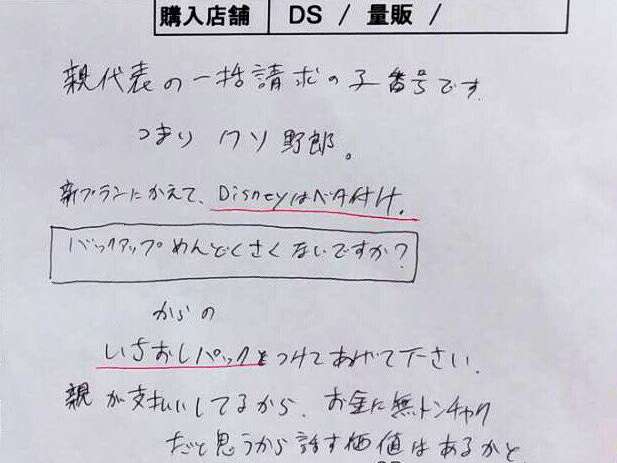 購入店舗 DS / 量販 /
親代表の一括請求の子番号です
つまり クソ野郎。
新プランにかえて、Disneyはベタ付け。
バックアップめんどくさくないですか?
からの
いちおしパックをつけてあげて下さい。
親が支払いしてるから、お金に無トンチャク
だと思うから話す価値はあるかと